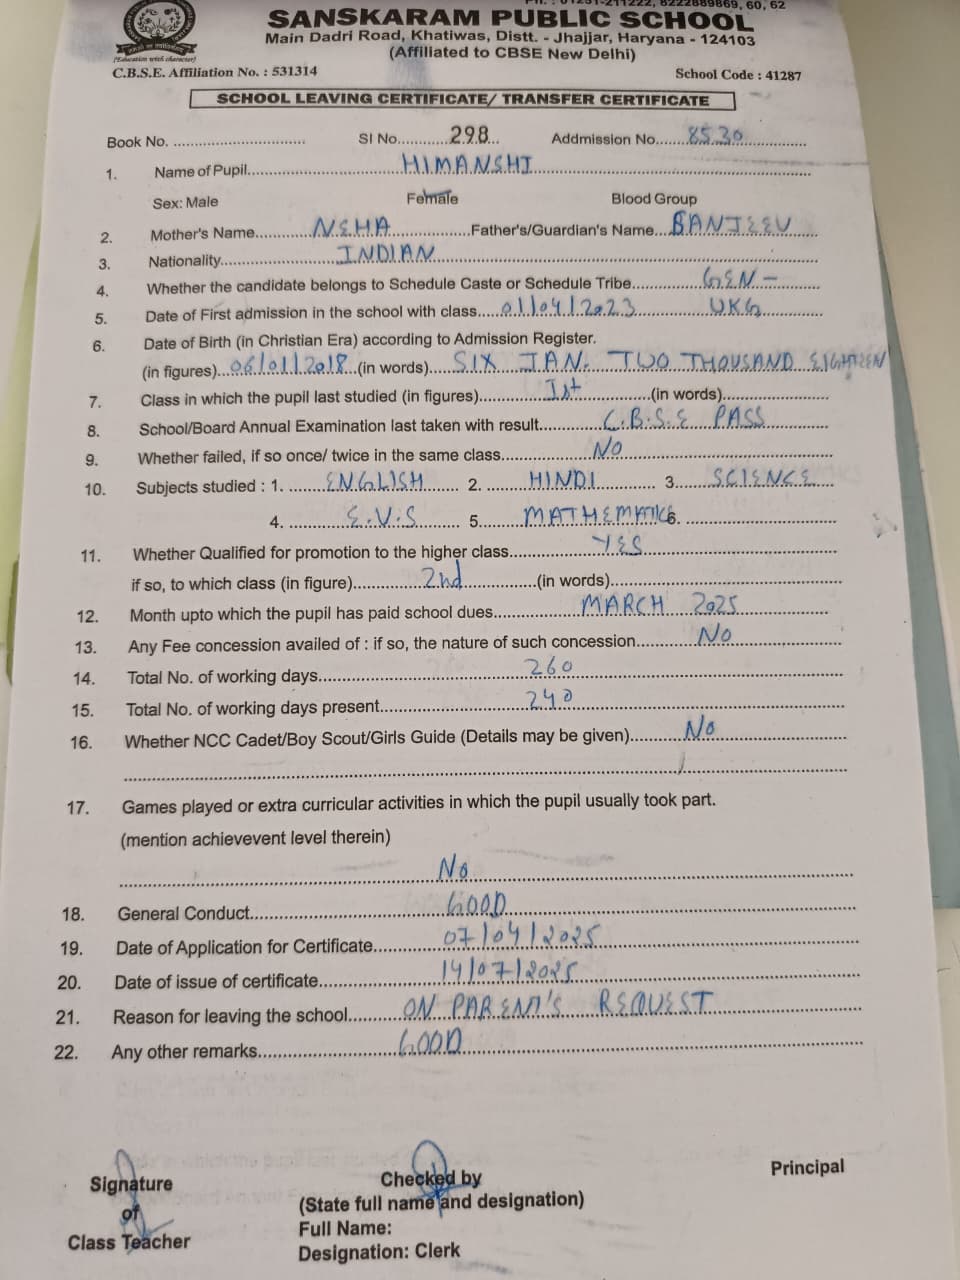 Ph. : 01251-211222, 8222889869, 60, 62
SANSKARAM PUBLIC SCHOOL
Main Dadri Road, Khatiwas, Distt. - Jhajjar, Haryana - 124103
(Affiliated to CBSE New Delhi)
(Education with character)
C.B.S.E. Affiliation No. : 531314 School Code : 41287
SCHOOL LEAVING CERTIFICATE/ TRANSFER CERTIFICATE
Book No. .............................. SI No............298... Addmission No.......8530
1. Name of Pupil.................HIMANSHI
Sex: Male Female Blood Group
2. Mother's Name............NEHA..................Father's/Guardian's Name...SANJEEV
3. Nationality.................INDIAN
4. Whether the candidate belongs to Schedule Caste or Schedule Tribe............GEN -
5. Date of First admission in the school with class.....01/04/2023 UKG
6. Date of Birth (in Christian Era) according to Admission Register.
(in figures)...06/01/2018...(in words)....SIX JAN. TWO THOUSAND EIGHTEEN
7. Class in which the pupil last studied (in figures)...........Ist...............(in words)......................
8. School/Board Annual Examination last taken with result............C.B.S.E PASS
9. Whether failed, if so once/ twice in the same class.................NO
10. Subjects studied : 1. ........ENGLISH........ 2. ........HINDI............ 3........SCIENCE
4. ............E.V.S......... 5.........MATHEMATICS 6. ..............................
11. Whether Qualified for promotion to the higher class................YES
if so, to which class (in figure).............2nd...............(in words)..............................
12. Month upto which the pupil has paid school dues.................MARCH 2025
13. Any Fee concession availed of : if so, the nature of such concession............NO
14. Total No. of working days..............................260
15. Total No. of working days present..............................240
16. Whether NCC Cadet/Boy Scout/Girls Guide (Details may be given)...........No
17. Games played or extra curricular activities in which the pupil usually took part.
(mention achievevent level therein)
No
18. General Conduct..............................GOOD
19. Date of Application for Certificate..............07/04/2025
20. Date of issue of certificate..............14/07/2025
21. Reason for leaving the school.........ON PARENT'S REQUEST
22. Any other remarks..............................GOOD
Signature Checked by Principal
of (State full name and designation)
Class Teacher Full Name:
Designation: Clerk